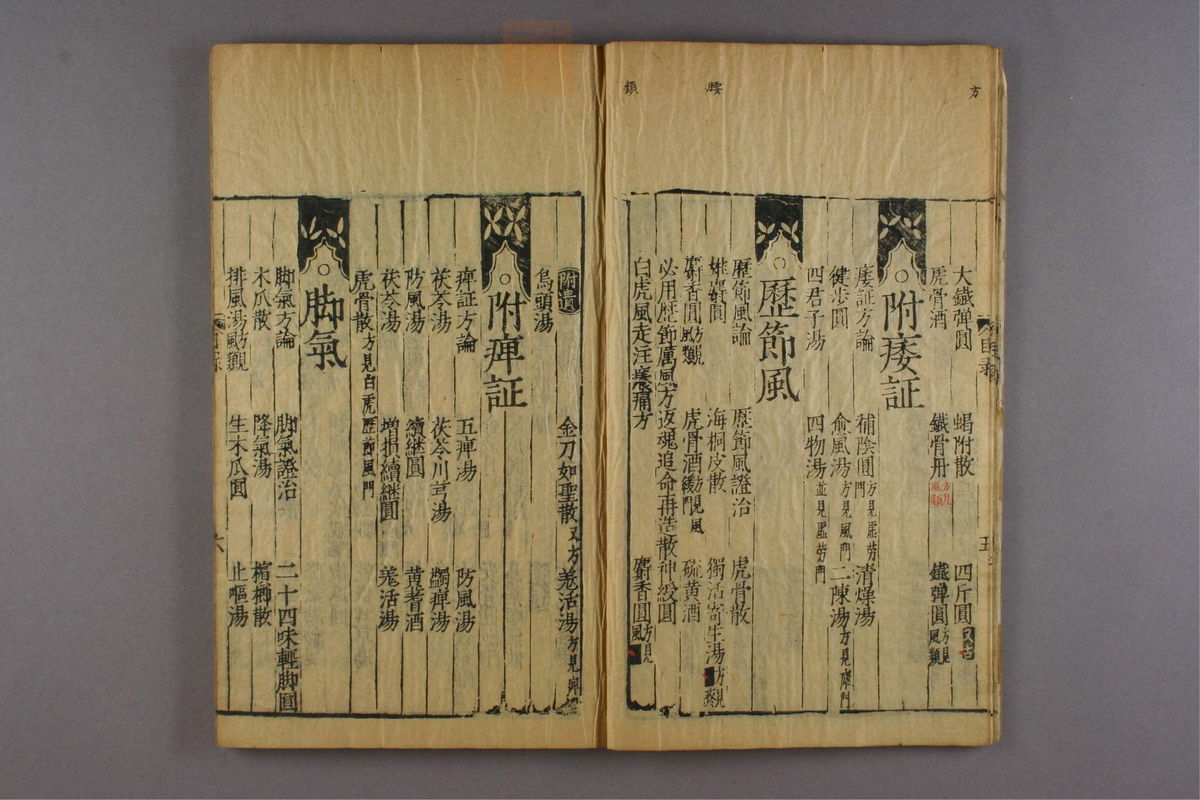 方
腰
類
大鐵彈圓 蝎附散 四斤圓
虎骨酒 鐵骨丹 方見風類 鐵彈圓 方見風類
附痿証
痿証方論 補陰圓 方見虛勞門 清燥湯
健步圓 愈風湯 方見風門 二陳湯 方見痺門
四君子湯 四物湯 並見虛勞門
歷節風
歷節風論 歷節風證治 虎骨散
海桐皮散 獨活寄生湯
麝香圓 方見風類 虎骨酒 硫黄酒
必用歷節厲風方 返魂追命再造散 神綬圓
白虎風走注癢痛方 麝香圓 方見風
附遺 金刀如聖散 又方 羗活湯 方見痺
烏頭湯
附痺証
痺証方論 五痺湯 防風湯
茯苓湯 茯苓川芎湯 蠲痺湯
防風湯 續継圓 黄耆酒
茯苓湯 増損續継圓 羗活湯
虎骨散 方見白虎歷節風門
脚氣
脚氣方論 脚氣證治 二十四味輕脚圓
木瓜散 降氣湯 檳榔散
排風湯 方見風類 生木瓜圓 止嘔湯
六